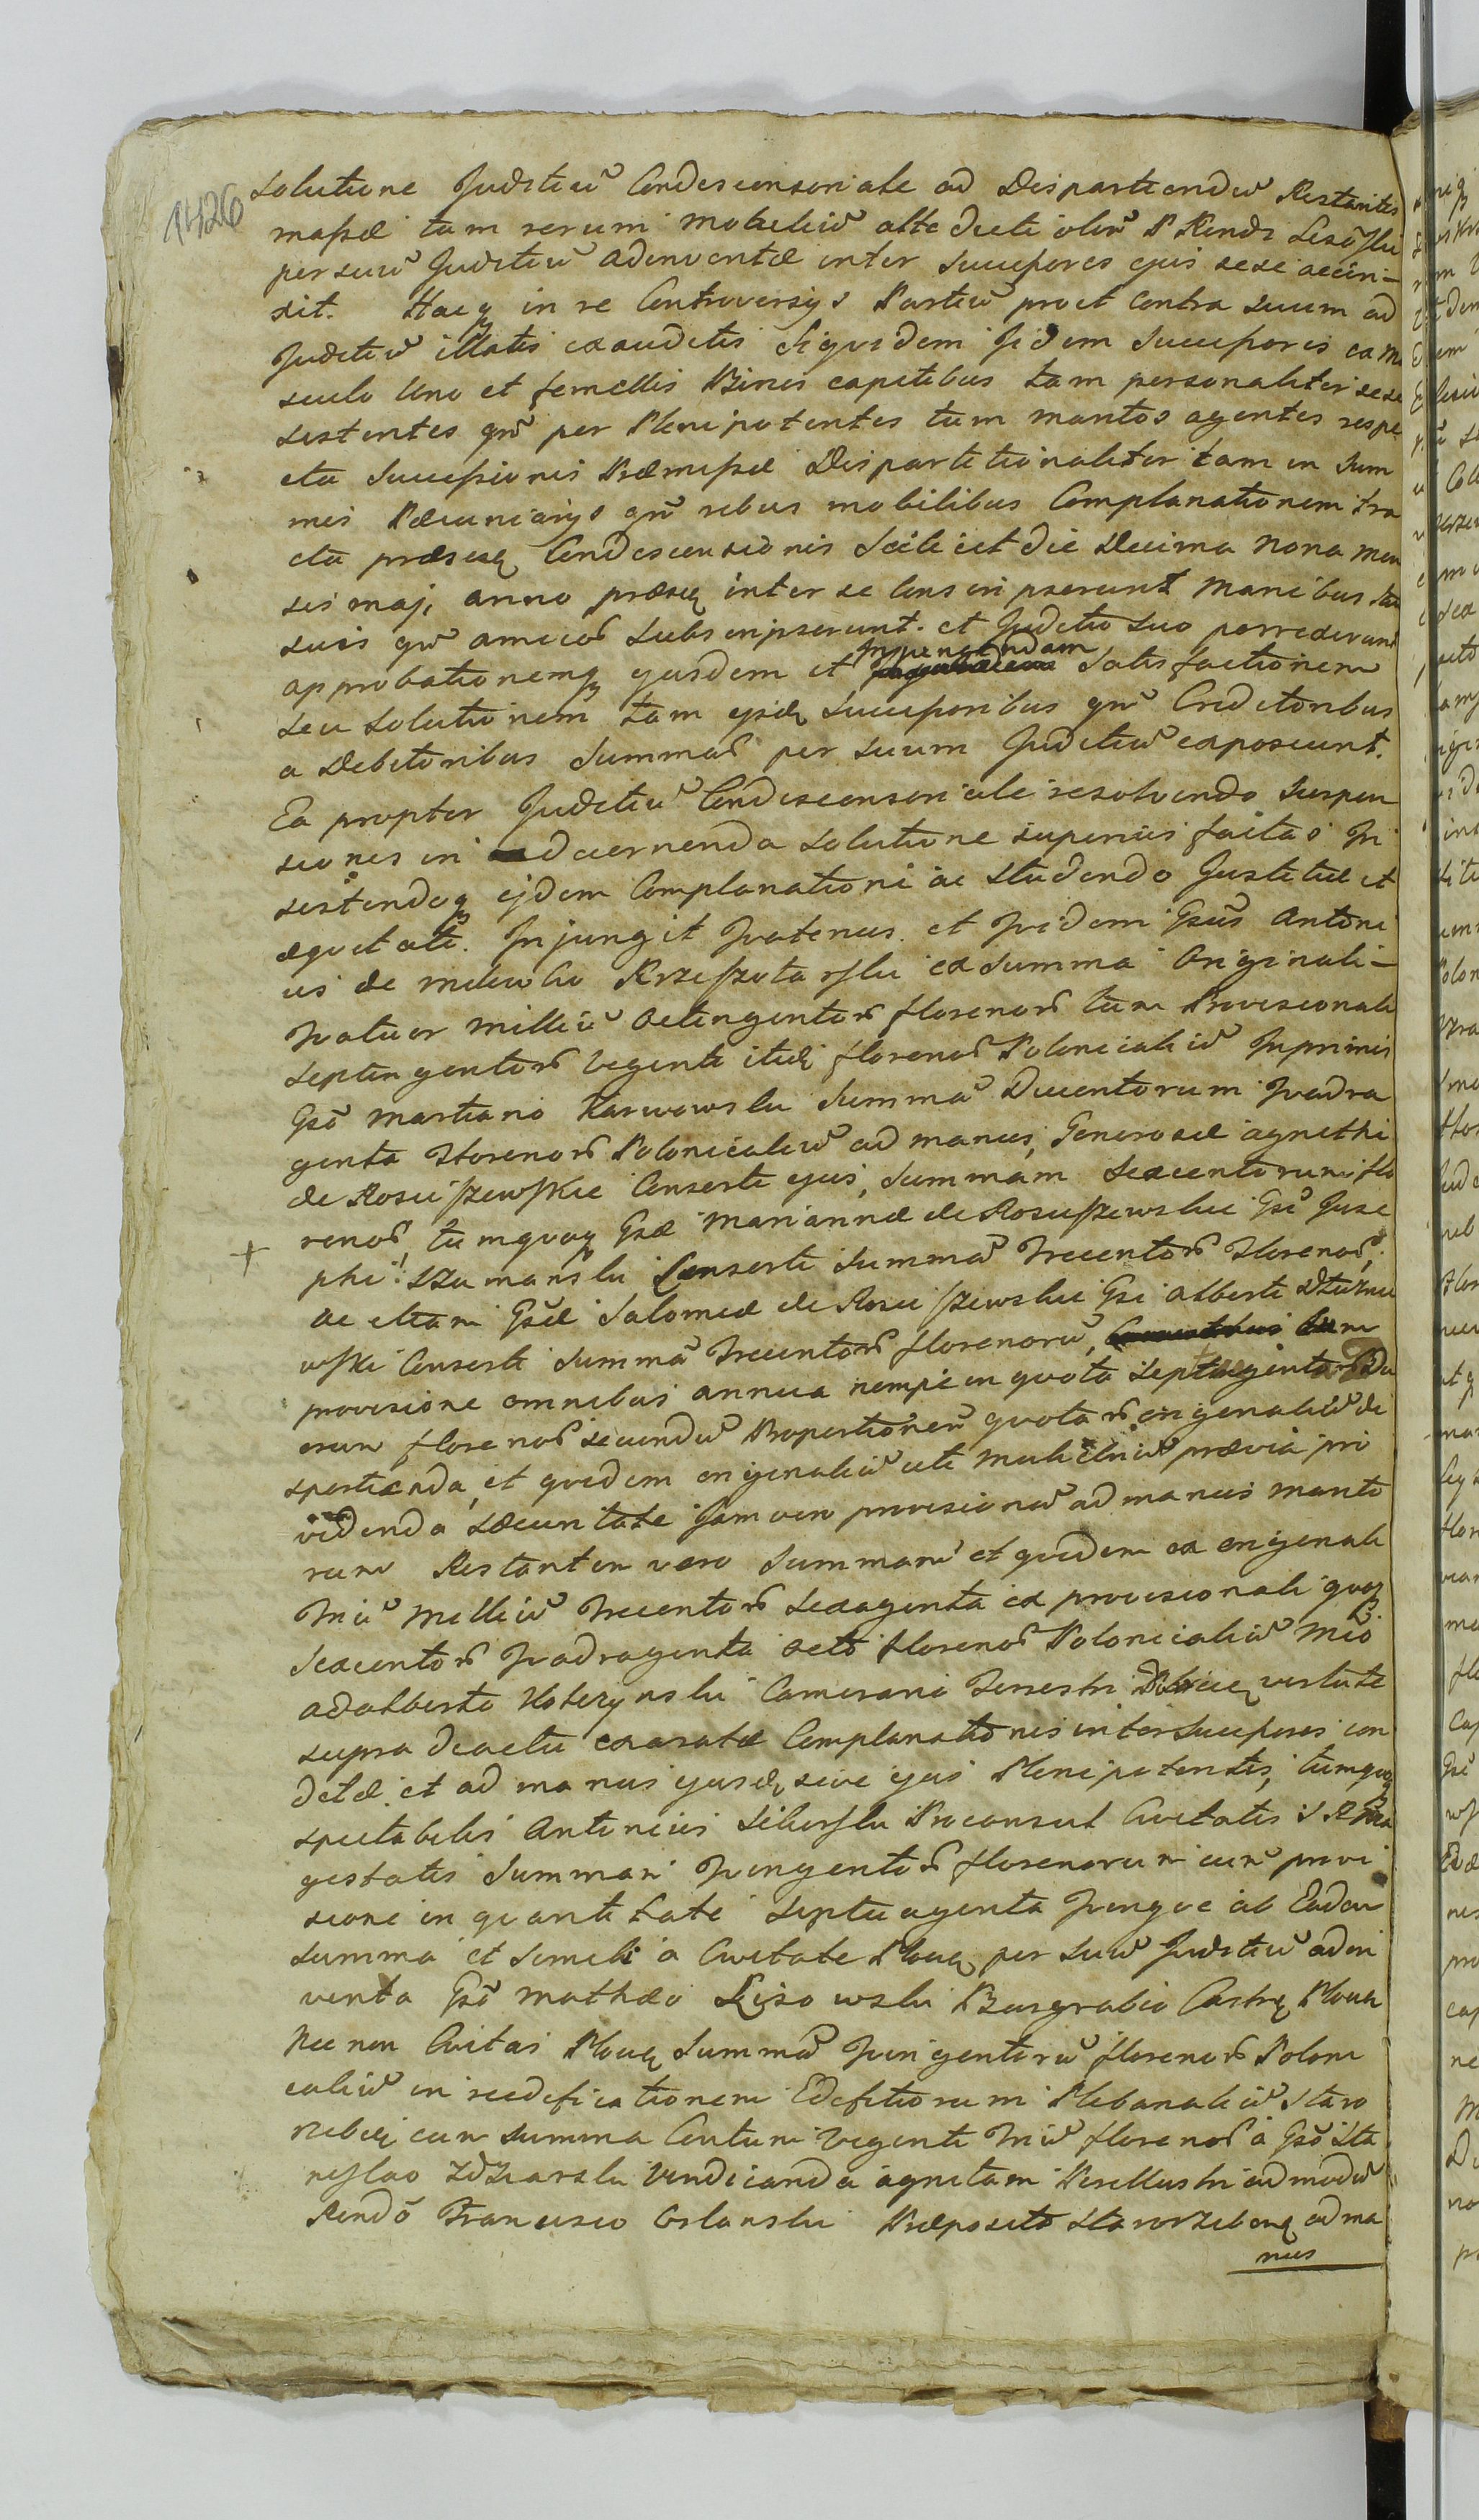 1426
Solutione Juditiū Condescensoriale ad Dispartiendū Restantes
massæ tam rerum mobiliū altedicti olim P Rendi Lisowski
per suū Juditiū adinventæ inter Successores ejus sese accin-
xit. Hacq in re Controversÿs Partiū pro et contra suum ad
Juditiū illatis exauditis siquidem Jidem Successores ex ma
sculo Uno et femellis Binis capitibus tam personaliter sese
sistentes qm̃ per Plenipotentes tum maritos agentes respe
ctu Successionis Præmissæ Dispartitionaliter tam in Sum
mis Pæcuniarÿs qm̃ rebus mobilibus Complanationem tra
ctu præseq Condescensionis Scilicet die Decima Nona Men
sis maji anno præseq inter se Conscripserunt Manibus
suis qm̃ amicor̃ subscripserunt. et Juditio suo porrexerunt
Impenendam
approbationemq ejusdem et Satisfactionem
seu Solutionem tam ÿsdeq Successoribus qm̃ Creditoribus
a Debitoribus Summar̃ per suum Juditiū exposcunt.
Ea propter Juditiū Condescensoriale resolvendo suspen
siones in decernenda Solutione superius factas In
sistendoq ejdem Complanationi ac studendo Justitiæ et
æquitati. Injungit Quatenus et Iidem Gsus Antoni
us de Milewko Krzeszotarski ex summa Originali-
Quatuor milliū octingentor̃ florenor̃ tum Provisionali
Septingentor̃ Viginti itidẽ florenor̃ Polonicaliū Inprimis
Gso Martiano Karwowski Summã Ducentorum Quadra
ginta Florenor̃ Polonicaliū ad manus, Generosæ Agnethi
de Rosciszewskie Consorti ejus, Summam Sexcentorum flo
+ renor̃, tumquoq Gsæ Mariannæ de Rosciszewskie Gsi Juse
phi Szumanski Consorti Summã Trecentor̃ Florenor̃,
ac etiam Gsæ Salomeæ de Rosciszewskie Gsi Alberti
wski Consorti Summã Trecentor̃ florenorū,
provisione omnibus annua nempe in quota
orum florenor̃ secundū Proportionem quotar̃ originaliū di
spertienda, et quidem originaliū uti Mulieriū prævia pro
videnda Sæcuritate Jam vero provisionū ad manus marito
rum Restantem vero Summam et quidem ex originali
Triū Milliū Trecentor̃ Sexaginta ex provisionali quoq
Sexcentor̃ Quadraginta octo florenor̃ Polonicaliū Mco
Adalberto Hoterynski Camerario Terrestri virtute
supra de actu exaratæ Complanationis inter Successores con
ditæ et ad manus ejusdq sive ejus Plenipotentis, tumquoq
spectabilis Antonius Sikorski Proconsul Civitatis S R Ma
gestatis Summam Quingentor̃ florenorum cum provi
sione in quantitate Septuaginta Quinque ab Eadem
Summa et Simili a Civitate Ploceq per suū Juditiū adin
venta Gso Mathæo Lisowski Burgrabio Castreq Plocen
Nec non Civitas Ploceq Summã Quingentorū florenor̃ Poloni
caliū in reedificationem Edifitiorum Plebanaliū Staro
rebeq cum Summa Centum Viginti Triū florenor̃ a Gso Sta
nislao Zdziarski Vindicanda agnitam Perillustri admodū
Rendo Francisco Orlanski Præposito Staroreboneq ad ma
nus